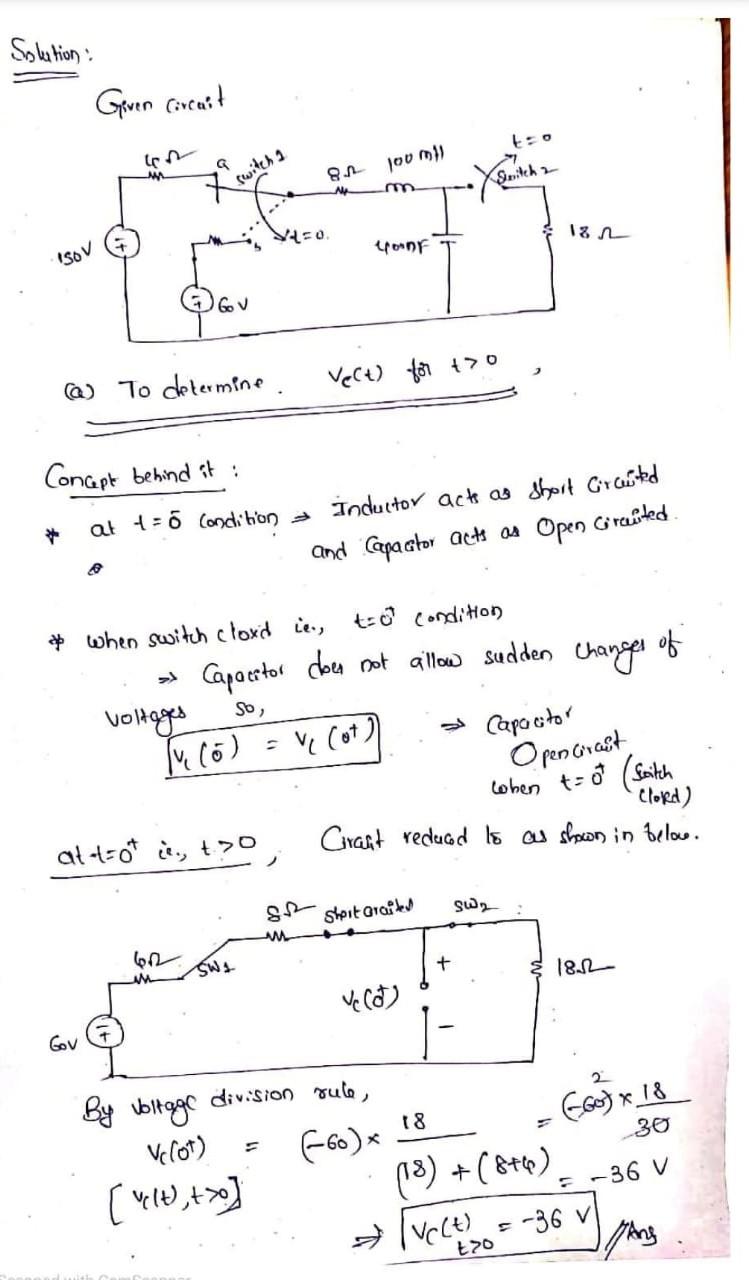 Solution :
Given Circuit
4Ω a switch 1 8Ω 100 mH t=0
Switch 2
150V b t=0. 400nF 18Ω
60V
(a) To determine. Vc(t) for t>0,
Concept behind it :
* at t=0⁻ Condition ⇒ Inductor acts as Short Circuited
and Capacitor acts as Open Circuited.
* when switch closed ie., t=0⁺ condition
⇒ Capacitor does not allow sudden changes of
Voltages so, ⇒ Capacitor
Vc(0⁻) = Vc(0⁺) Open Circuit
when t=0⁺ (Switch
closed)
at t=0⁺ ie, t>0, Circuit reduced to as shown in below.
8Ω Short circuited SW2 :
6Ω SW1 + 18Ω
Vc(0⁺)
60V −
By Voltage division rule,
Vc(0⁺) = (-60) × 18 / (18) + (8+4) = (-60) × 18 / 30 2
[Vc(t), t>0] = -36 V
⇒ Vc(t) t>0 = -36 V //Ans.